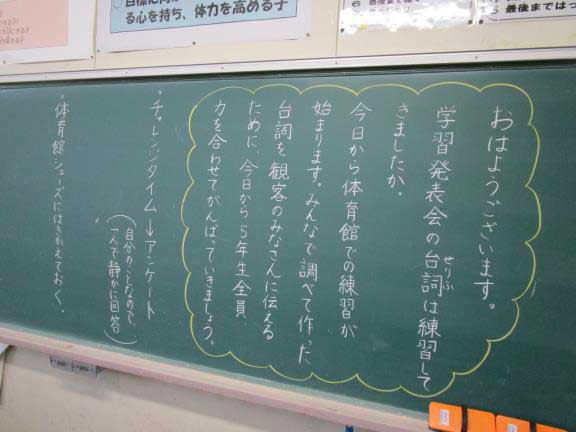 る心を持ち、体力を高める子
最後まではっ
おはようございます。
学習発表会の台詞は練習して
せりふ
きましたか。
今日から体育館での練習が
始まります。みんなで調べて作った
台詞を観客のみなさんに伝える
ために、今日から5年生全員、
力を合わせてがんばっていきましょう。
・チャレンジタイム→アンケート
(自分のことなので、
一人で静かに回答)
・体育館シューズにはきかえておく。